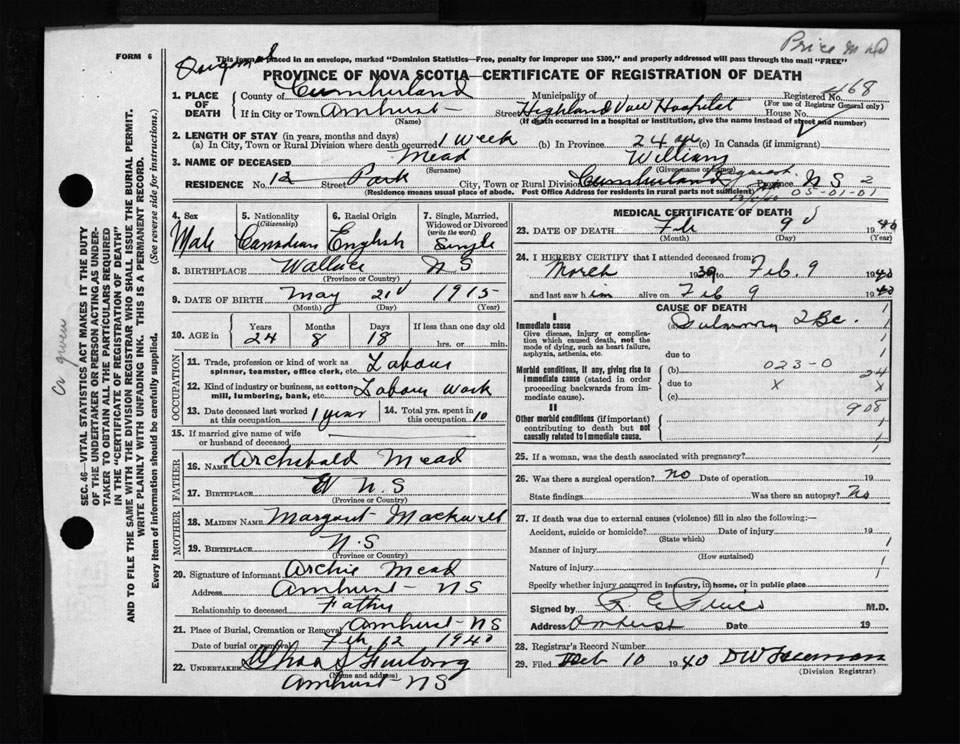 Price M D
FORM 6
Original
This form placed in an envelope, marked "Dominion Statistics—Free, penalty for improper use $300," and properly addressed will pass through the mail "FREE"
PROVINCE OF NOVA SCOTIA—CERTIFICATE OF REGISTRATION OF DEATH
1. PLACE OF DEATH
County of Cumberland Municipality of Registered No. 468
(For use of Registrar General only)
If in City or Town Amherst Street Highland View Hospital House No.
(Name) (If death occurred in a hospital or institution, give the name instead of street and number)
2. LENGTH OF STAY (in years, months and days)
(a) In City, Town or Rural Division where death occurred 1 week (b) In Province 24 (c) In Canada (if immigrant)
3. NAME OF DECEASED Mead William
(Surname) (Given name or names)
RESIDENCE No. 12 Street Park City, Town or Rural Division Cumberland Province NS 2
(Residence means usual place of abode. Post Office Address for residents in rural parts not sufficient) 05-01-01
4. Sex Male
5. Nationality (Citizenship) Canadian
6. Racial Origin English
7. Single, Married, Widowed or Divorced (write the word) Single
8. BIRTHPLACE Wallace NS
(Province or Country)
9. DATE OF BIRTH May 21 1915
(Month) (Day) (Year)
10. AGE in Years 24 Months 8 Days 18 If less than one day old hrs. or min.
OCCUPATION
11. Trade, profession or kind of work as spinner, teamster, office clerk, etc. Labour
12. Kind of industry or business, as cotton mill, lumbering, bank, etc. Labour Work
13. Date deceased last worked at this occupation 1 year
14. Total yrs. spent in this occupation 10
15. If married give name of wife or husband of deceased
FATHER
16. NAME Archibald Mead
17. BIRTHPLACE N.S
(Province or Country)
MOTHER
18. MAIDEN NAME Margaret
19. BIRTHPLACE N.S
(Province or Country)
20. Signature of informant Archie Mead
Address Amherst NS
Relationship to deceased Father
21. Place of Burial, Cremation or Removal Amherst NS
Date of burial or removal Feb 12 1940
22. UNDERTAKER Chas S Furlong
(Name and address)
Amherst NS
MEDICAL CERTIFICATE OF DEATH
23. DATE OF DEATH Feb 9 1940
(Month) (Day) (Year)
24. I HEREBY CERTIFY that I attended deceased from
March 1939 to Feb. 9 1940
and last saw him alive on Feb 9 1940
CAUSE OF DEATH
I
Immediate cause
Give disease, injury or complication which caused death, not the mode of dying, such as heart failure, asphyxia, asthenia, etc.
(a) Pulmonary TBc.
due to
Morbid conditions, if any, giving rise to immediate cause (stated in order proceeding backwards from immediate cause).
(b) 023-0
due to X 24 X
(c)
II
Other morbid conditions (if important) contributing to death but not causally related to immediate cause.
908
25. If a woman, was the death associated with pregnancy?
26. Was there a surgical operation? no Date of operation 19
State findings Was there an autopsy? No
27. If death was due to external causes (violence) fill in also the following:—
Accident, suicide or homicide? Date of injury 19
(State which)
Manner of injury
(How sustained)
Nature of injury
Specify whether injury occurred in industry, in home, or in public place
Signed by M.D.
Address Amherst Date 19
28. Registrar's Record Number
29. Filed Feb 10 1940 DW Freeman
(Division Registrar)
SEC. 46—VITAL STATISTICS ACT MAKES IT THE DUTY
OF THE UNDERTAKER OR PERSON ACTING AS UNDER-
TAKER TO OBTAIN ALL THE PARTICULARS REQUIRED
IN THE "CERTIFICATE OF REGISTRATION OF DEATH"
AND TO FILE THE SAME WITH THE DIVISION REGISTRAR WHO SHALL ISSUE THE BURIAL PERMIT.
WRITE PLAINLY WITH UNFADING INK. THIS IS A PERMANENT RECORD.
Every item of information should be carefully supplied. (See reverse side for instructions.)